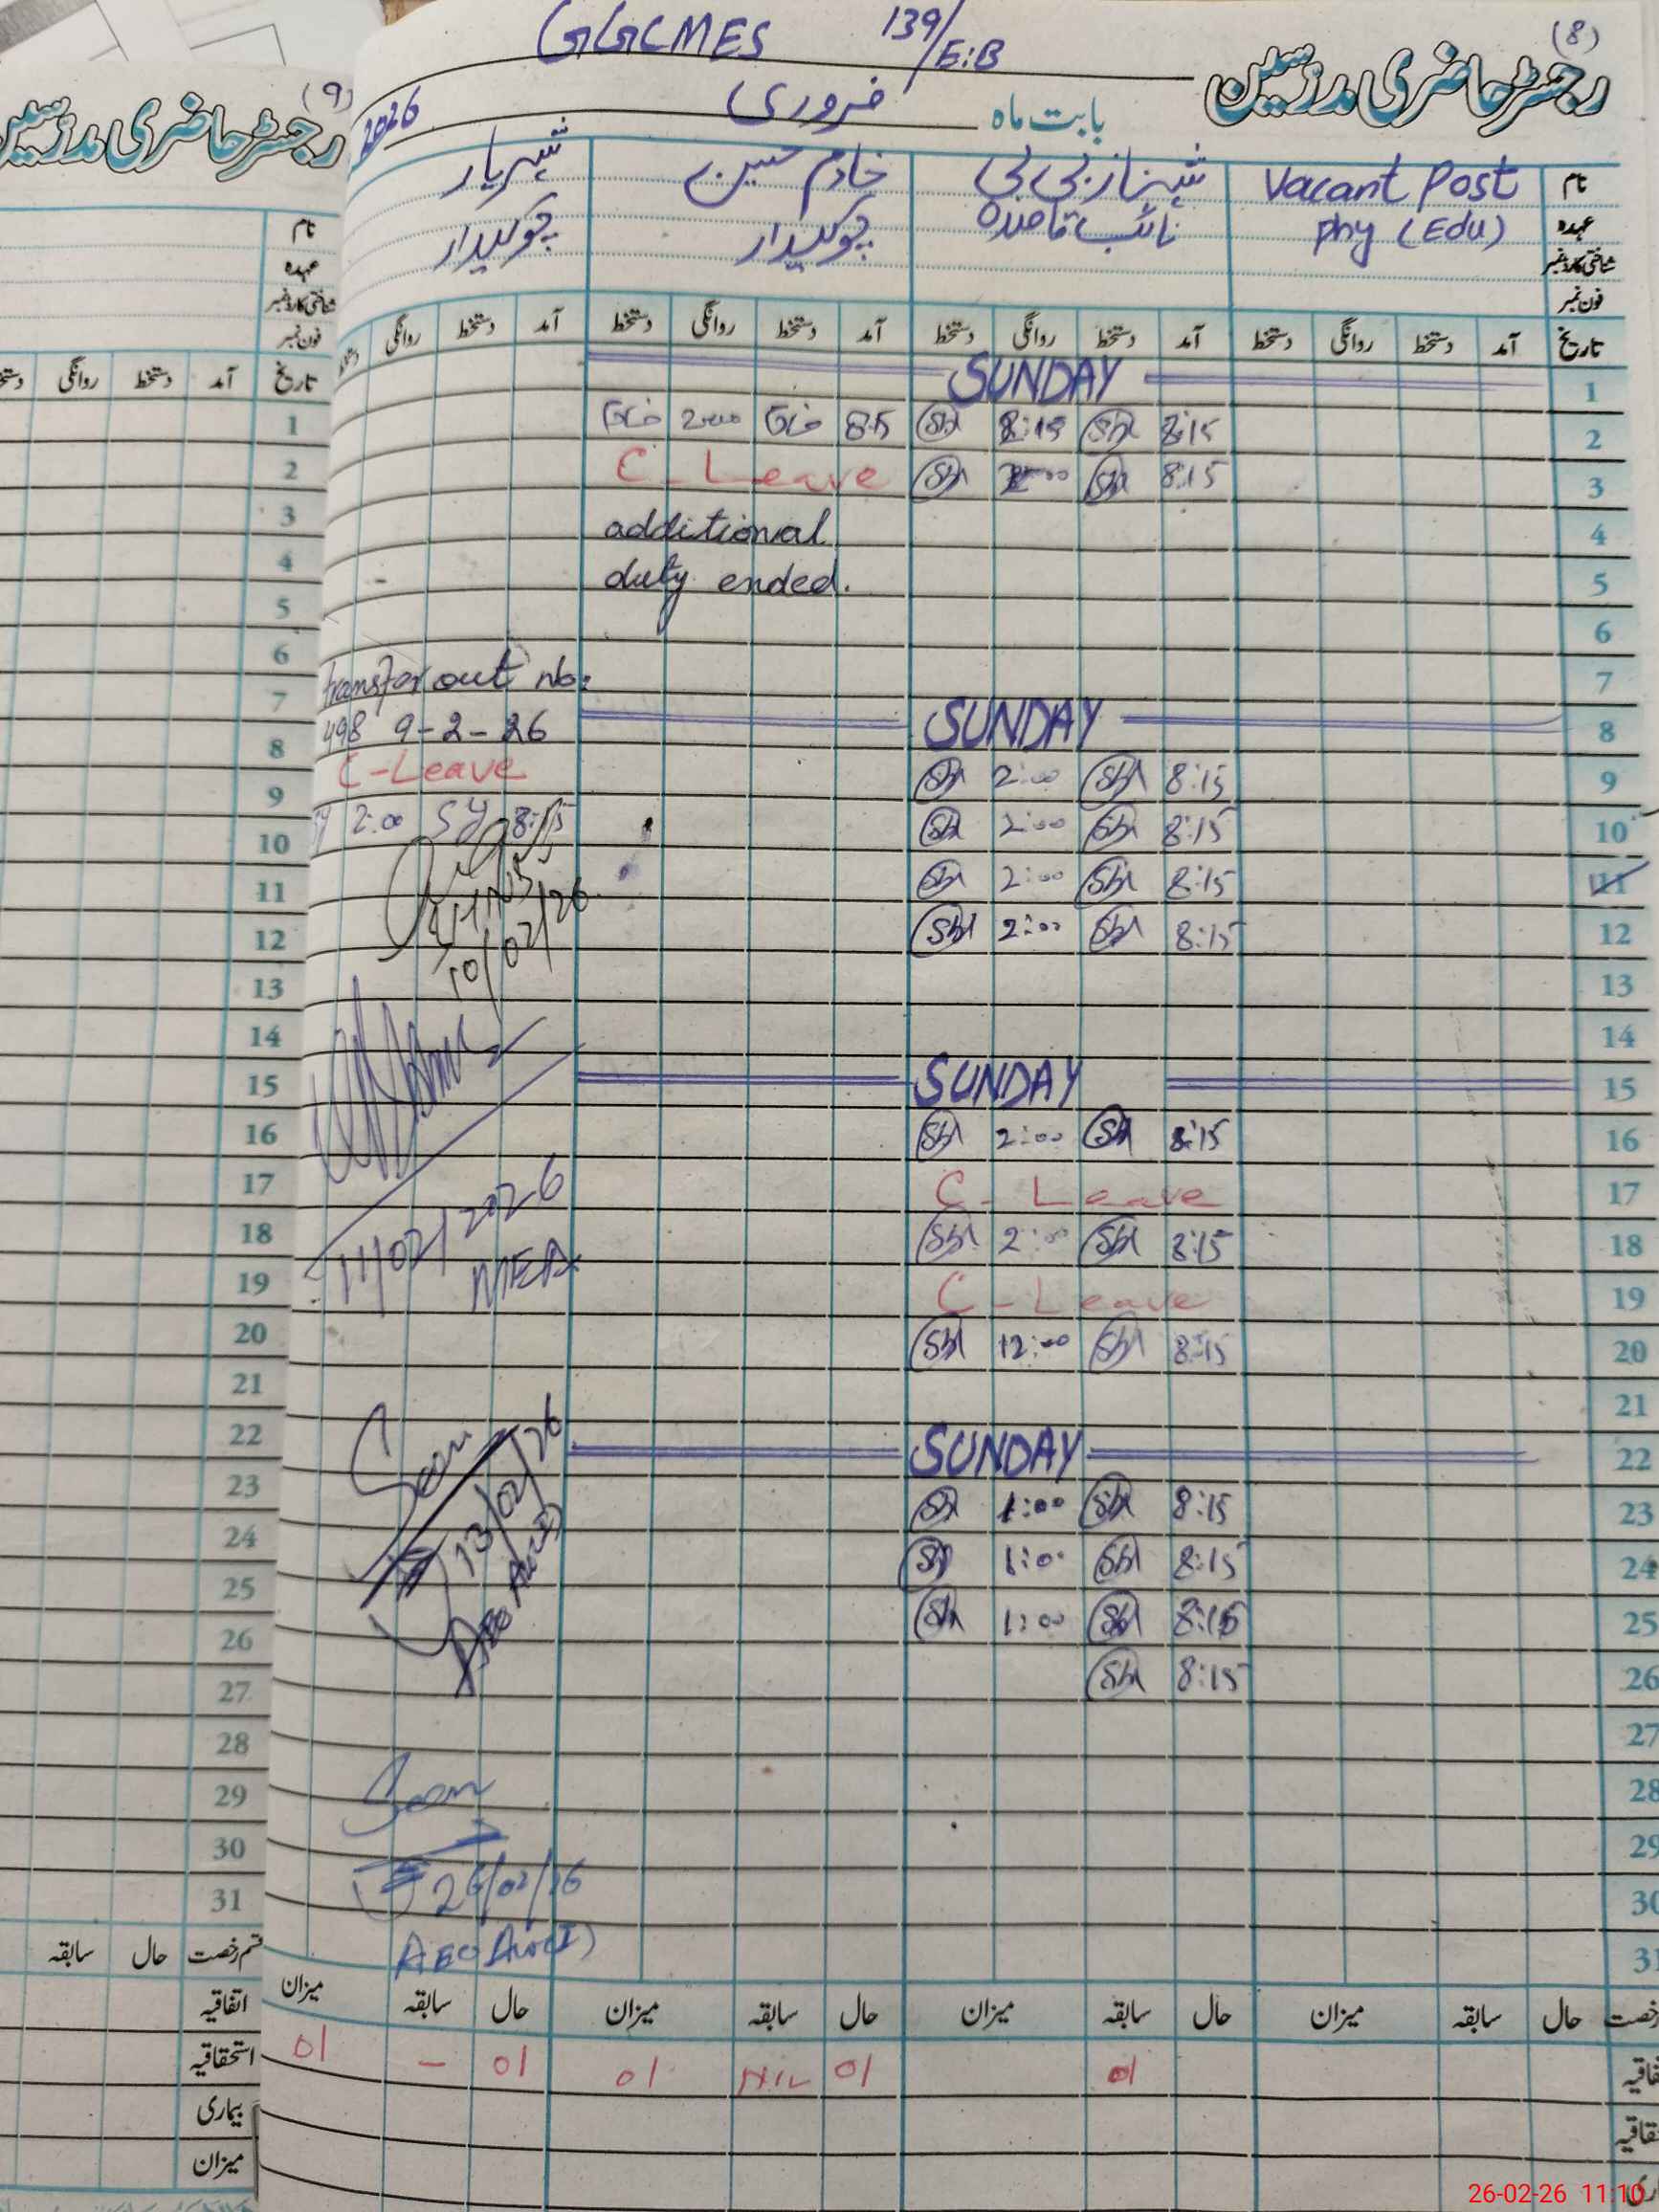 GGCMES 139/E:B
(8)
رجسٹر حاضری مدرسین
بابت ماہ فروری 2026
نام Vacant Post شہناز بی بی خادم حسین شہریار
عہدہ Phy (Edu) نائب قاصدہ چوکیدار چوکیدار
شناختی کارڈ نمبر
فون نمبر
تاریخ آمد دستخط روانگی دستخط آمد دستخط روانگی دستخط آمد دستخط روانگی دستخط آمد دستخط روانگی
1 SUNDAY
2 8:15 Sh 8:15 Sh 8:15 2:00
3 8:15 Sh 2:00 Sh C-Leave
4 additional
5 duty ended.
6
7 transfer out no:
8 SUNDAY 498 9-2-26
9 8:15 Sh 2:00 Sh C-Leave
10 8:15 Sh 2:00 Sh 8:15 SY 2:00 SY
11 8:15 Sh 2:00 Sh
12 8:15 Sh 2:00 Sh 10/02/26
13
14
15 SUNDAY
16 8:15 Sh 2:00 Sh
17 C-Leave
18 8:15 Sh 2:00 Sh 11/02/2026
19 C-Leave MEA
20 8:15 Sh 12:00 Sh
21
22 SUNDAY
23 8:15 Sh 1:00 Sh Seen
24 8:15 Sh 1:00 Sh 13/02/26
25 8:15 Sh 1:00 Sh AEO
26 8:15 Sh
27
28 Seen
29
30 26/02/26
31 AEO
رخصت حال سابقہ میزان حال سابقہ میزان حال سابقہ میزان حال سابقہ میزان
01 01 NIL 01 01 - 01
(9)
رجسٹر حاضری مدرسین
نام
عہدہ
شناختی کارڈ نمبر
فون نمبر
تاریخ آمد دستخط روانگی
1
2
3
4
5
6
7
8
9
10
11
12
13
14
15
16
17
18
19
20
21
22
23
24
25
26
27
28
29
30
31
قسم رخصت حال سابقہ
اتفاقیہ
استحقاقیہ
بیماری
میزان
26-02-26 11:10